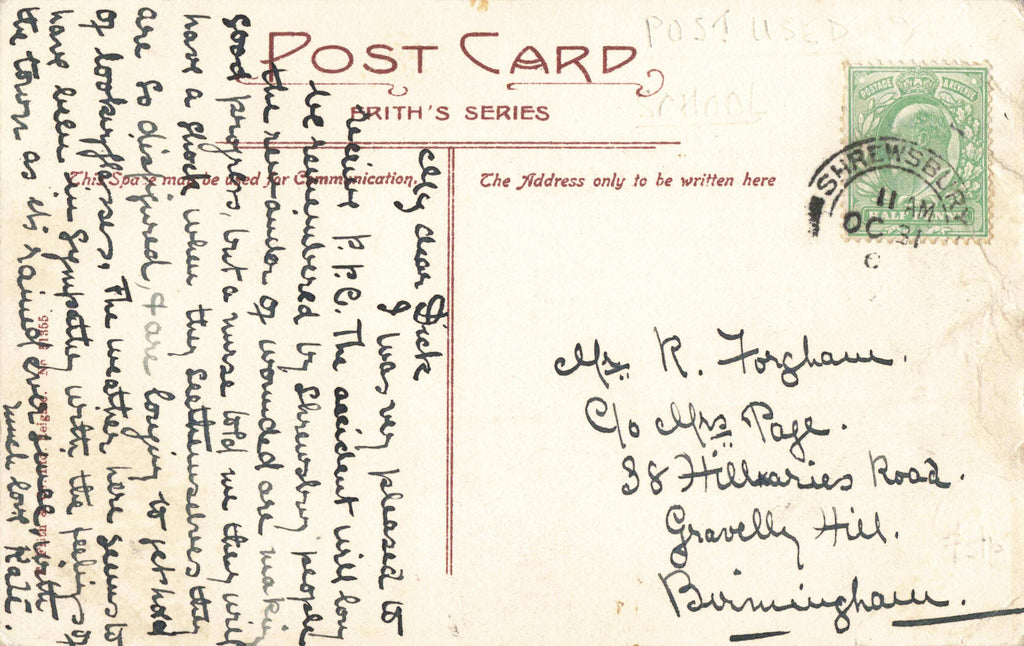 POST USED
POST CARD
FRITH'S SERIES
This Space may be used for Communication.
The Address only to be written here
POSTAGE REVENUE
HALF PENNY
SHREWSBURY
11 AM
OC 31
Mr. R. Forgham.
C/o Mrs Page.
38 Hillaries Road.
Gravelly Hill.
Birmingham.
My dear Dick
I was very pleased to
receive P.P.C. The accident will long
be remembered by Shrewsbury people
the remainder of wounded are making
good progress, but a nurse told me they will
have a shock when they see themselves they
are so disfigured, & are longing to get hold
of lookingglasses. The weather here seems to
have been in sympathy with the feelings of
the town as it's rained ever since with
much love Kate.